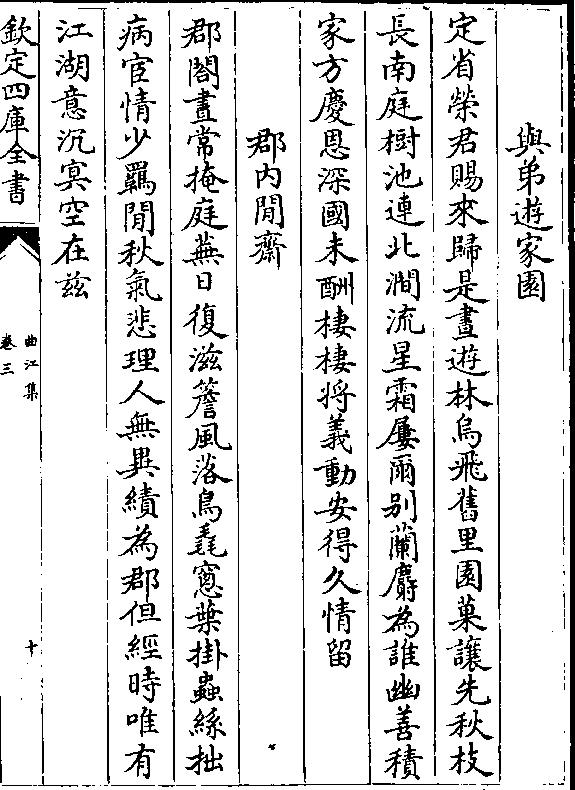 與弟遊家園
定省榮君賜來歸是晝遊林烏飛舊里園菓讓先秋枝
長南庭樹池連北澗流星霜屢爾别蘭麝為誰幽善積
家方慶恩深國未酬棲棲将義動安得久情留
郡内閒齋
郡閤晝常掩庭蕪日復滋簷風落鳥毳窻葉掛蟲絲拙
病宦情少羈閒秋氣悲理人無異績為郡但經時唯有
江湖意沉冥空在兹
欽定四庫全書
曲江集
卷三
十